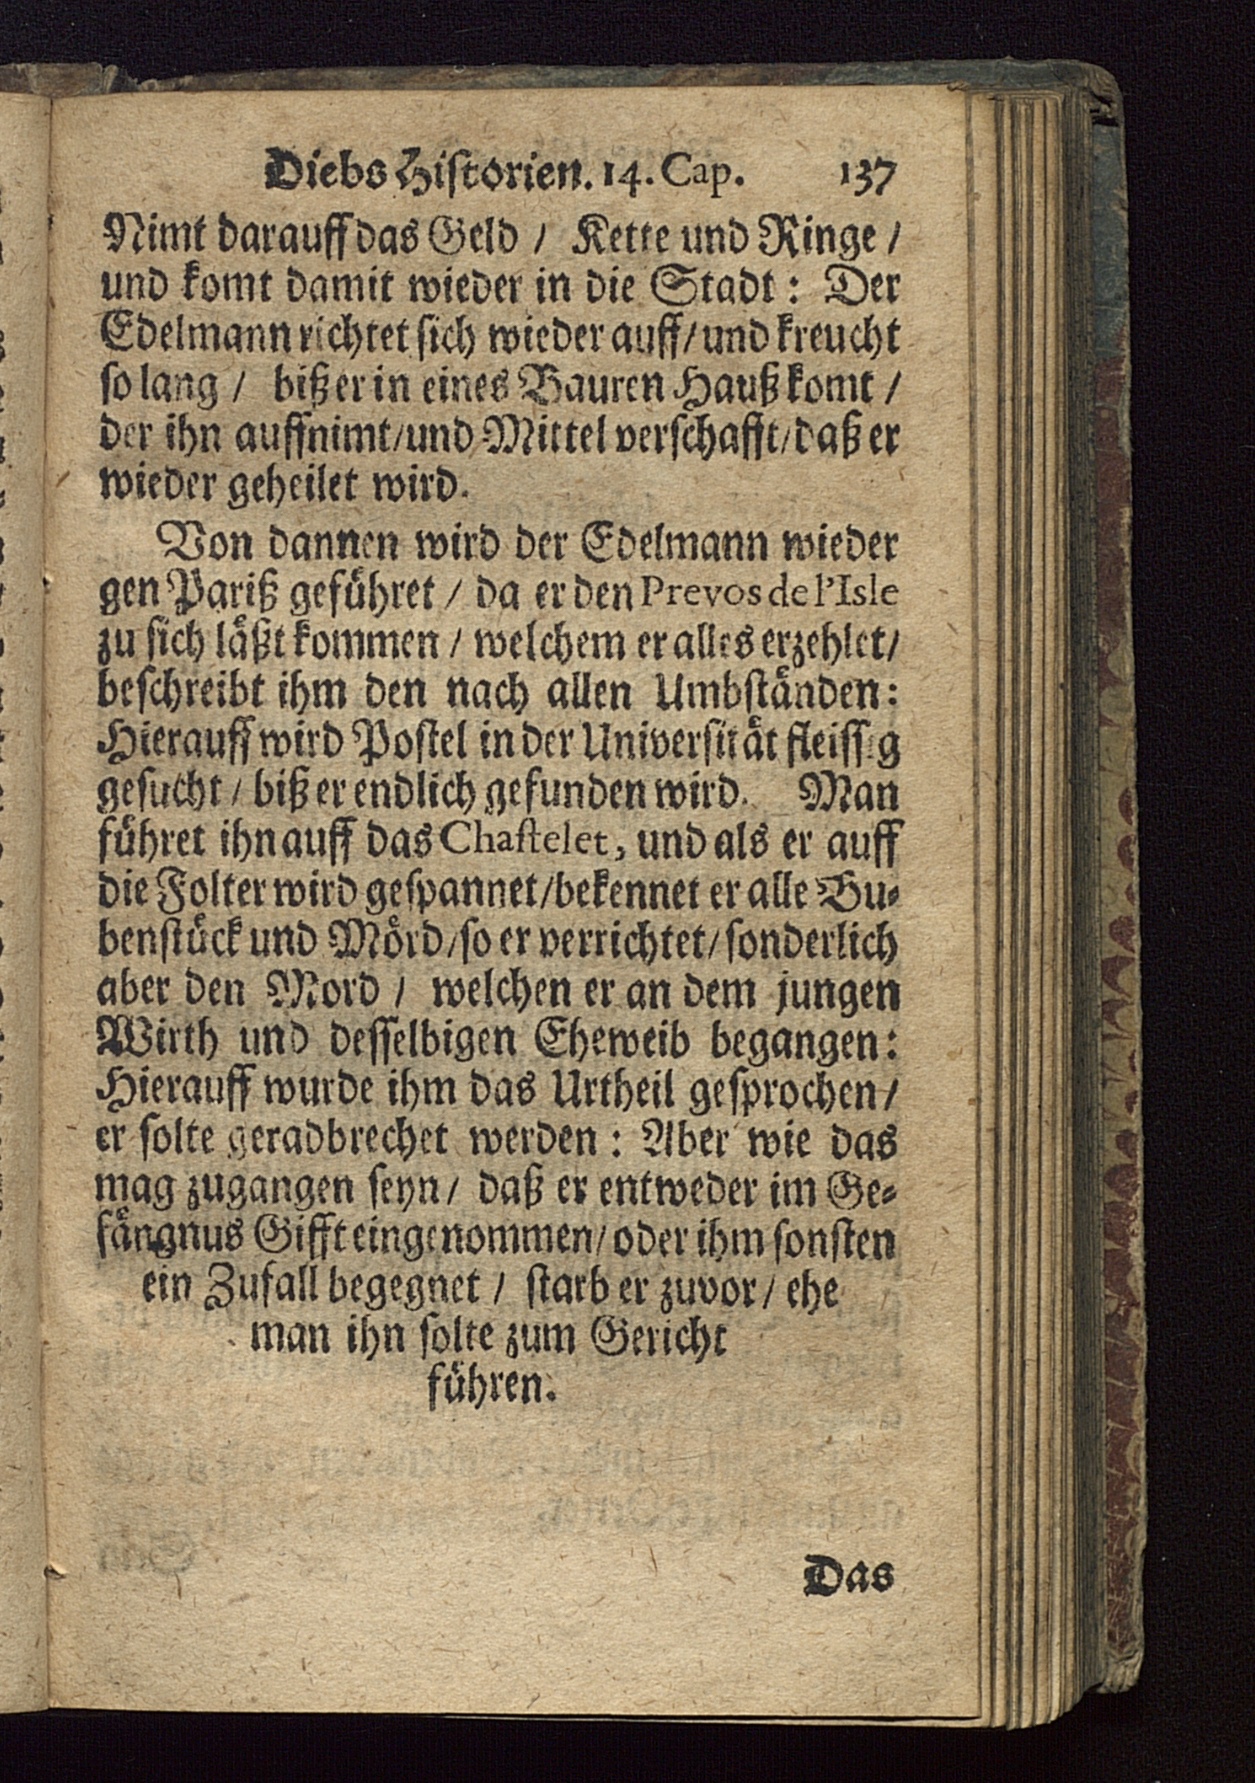 Diebs Historien. 14. Cap. 137
Nimt darauff das Geld / Kette und Ringe /
und komt damit wieder in die Stadt: Der
Edelmann richtet sich wieder auff / und kreucht
so lang / biß er in eines Bauren Hauß komt /
der ihn auffnimt / und Mittel verschafft / daß er
wieder geheilet wird.
Von dannen wird der Edelmann wieder
gen Pariß geführet / da er den Prevos de l'Isle
zu sich läßt kommen / welchem er alles erzehlet /
beschreibt ihm den nach allen Umbständen:
Hierauff wird Postel in der Universität fleissig
gesucht / biß er endlich gefunden wird. Man
führet ihn auff das Chastelet, und als er auff
die Folter wird gespannet / bekennet er alle Bu-
benstück und Mörd / so er verrichtet / sonderlich
aber den Mord / welchen er an dem jungen
Wirth und desselbigen Eheweib begangen:
Hierauff wurde ihm das Urtheil gesprochen /
er solte geradbrechet werden: Aber wie das
mag zugangen seyn / daß er entweder im Ge-
fängnus Gifft eingenommen / oder ihm sonsten
ein Zufall begegnet / starb er zuvor / ehe
man ihn solte zum Gericht
führen.
Das